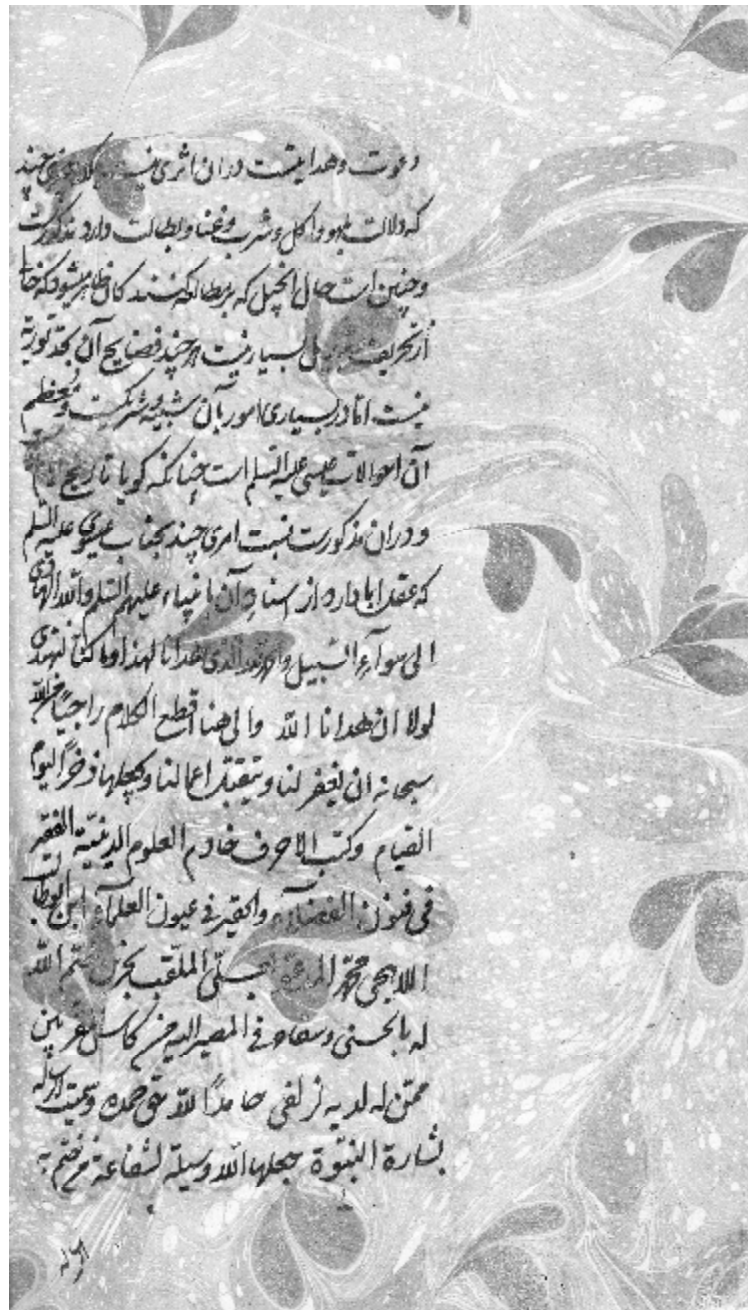 دعوت و هدایتست دران اثری نیست کلامی چند
که دلالت بلهو و اکل و شرب و غنا و بطالت دارد مذکورست
و چنین است حال انجیل که هر مطالعه کننده کان ظاهر میشود که
از تحریف بسیار نیست هر چند فضایح آن بحد توریة
نیست اما در بسیاری امور بآن شبیه و شریکست و معظم
آن احوالات عیسی علیه السلم است چنانکه کویا تاریخ
و دران مذکورست نسبت امری چند بجناب عیسی علیه السلم
که عقل ابا دارد از اسناد آن بانبیاء علیهم السلم والله الهادی
الی سوآء السبیل والحمد لله الذی هدانا لهذا وما کنا لنهتدی
لولا ان هدانا الله والی هنا اقطع الکلام راجیا من الله
سبحانه ان یغفر لنا ویتقبل اعمالنا ویجعلها ذخرا لیوم
القیام وکتب الاحرف خادم العلوم الدینیة الفقیر
فی فنون الفضلآء والحقیر فی عیون العلمآء ابن ابوطالب
اللاهجی محمد المدعو بعلی الملقب بحزین ختم الله
له بالحسنی وسقاه فی المصیر الیه من کاس
ممتن له لدیه زلفی حامدا لله حق حمده وسمیت
بشارة النبوة جعلها الله وسیلة لشفاعة من ختم به